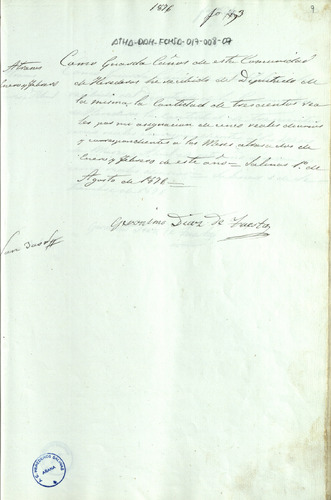 1876
fo 193
9
ATHA-DAH-FCHSD-017-008-07
Atrasos
Enero y febrero
Como Guarda de esta Comunidad
de Herederos he recibido del Diputado de
la misma la Cantidad de trescientos rea
les por mi asignacion de cinco reales diarios
y correspondientes á los Meses atrasados de
Enero y febrero de este año = Salinas 1º de
Agosto de 1876 =
Geronimo Diaz de
Son 300 r
A.C. HEREDEROS SALINAS
AÑANA